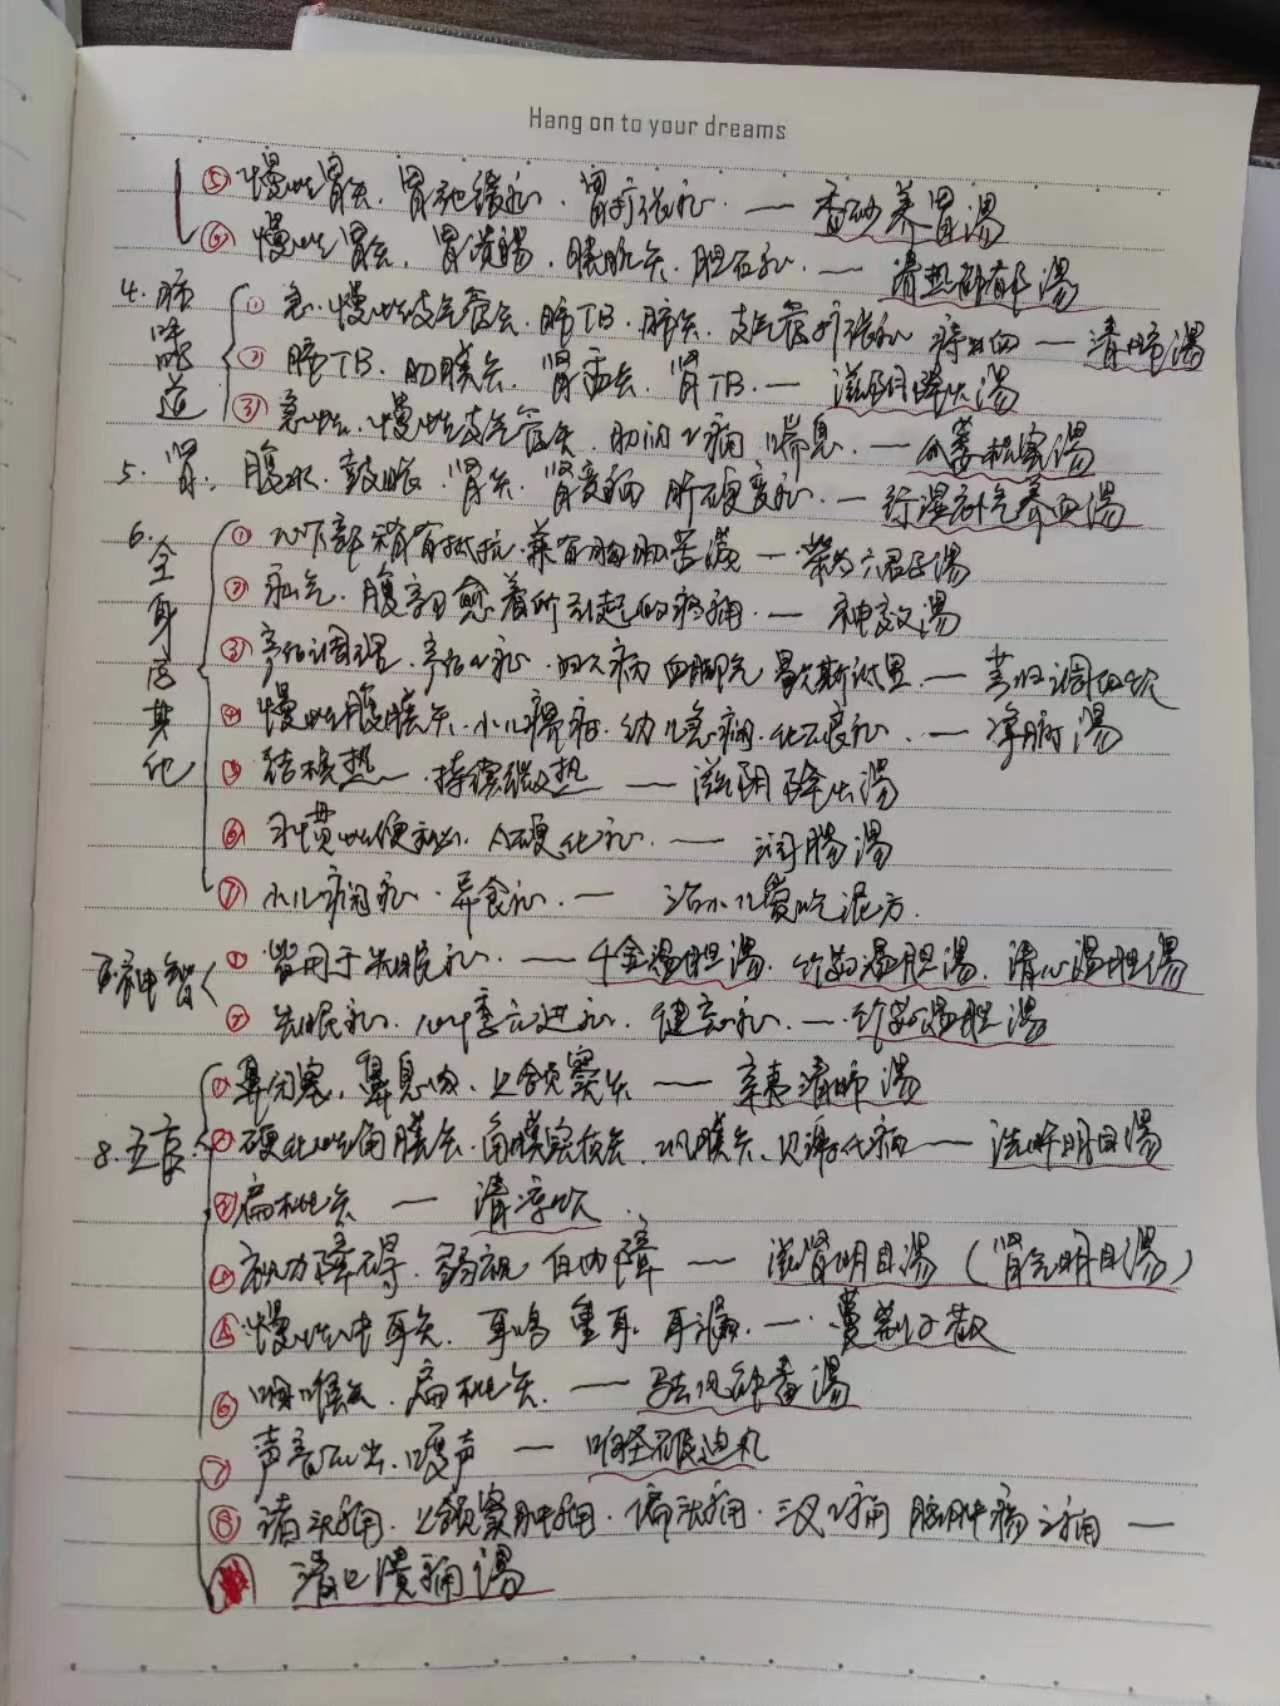 Hang on to your dreams
⑤ 慢性胃炎、胃弛缓症、胃扩张症 — 香砂养胃汤
⑥ 慢性胃炎、胃溃疡、胰脏炎、胆石症 — 清热解郁汤
4. 肺呼吸道 ① 急、慢性支气管炎、肺TB、肺炎、支气管扩张症 — 清肺汤
② 肺TB、肋膜炎、肾盂炎、肾TB — 滋阴降火汤
③ 急性、慢性支气管炎、肋间N痛 喘息 — 瓜蒌枳实汤
5. 肾: 腹水、鼓胀、肾炎、肾变病 肝硬变症 — 行湿补气养血汤
6. 全身及其他 ① 心下部稍有抵抗、兼有胸胁苦满 — 柴芍六君子汤
② 疝气、腹部愈着所引起的疼痛 — 神效汤
③ 产后调理、产后N症、妇人病 血脚气 歇斯底里 — 芎归调血饮
④ 慢性腹膜炎、小儿 幼儿急痫、化不良症 — 净腑汤
⑤ 结核热 持续微热 — 滋阴降火汤
⑥ 习惯性便秘、A硬化症 — 润肠汤
⑦ 小儿疳症、异食症 — 治小儿爱吃泥方
神智 ① 皆用于失眠症 — 千金温胆汤、竹茹温胆汤、清心温胆汤
② 失眠症、心悸亢进症、健忘症 — 竹茹温胆汤
8. 五官 ① 鼻闭塞、鼻息肉、上颌窦炎 — 辛夷清肺汤
② 硬化性角膜炎、角膜实质炎、巩膜炎、贝 — 洗肝明目汤
③ 扁桃炎 — 清凉饮
④ 视力障碍、弱视 白内障 — 滋肾明目汤（肾气明目汤）
⑤ 慢性中耳炎、耳鸣 重耳、耳漏 — 蔓荆子散
⑥ 咽喉炎、扁桃炎 — 驱风解毒汤
⑦ 声音不出、嗄声 — 响声破笛丸
⑧ 诸头痛、上颌窦肿痛、偏头痛、三叉N痛 脑肿疡之痛 —
清上蠲痛汤